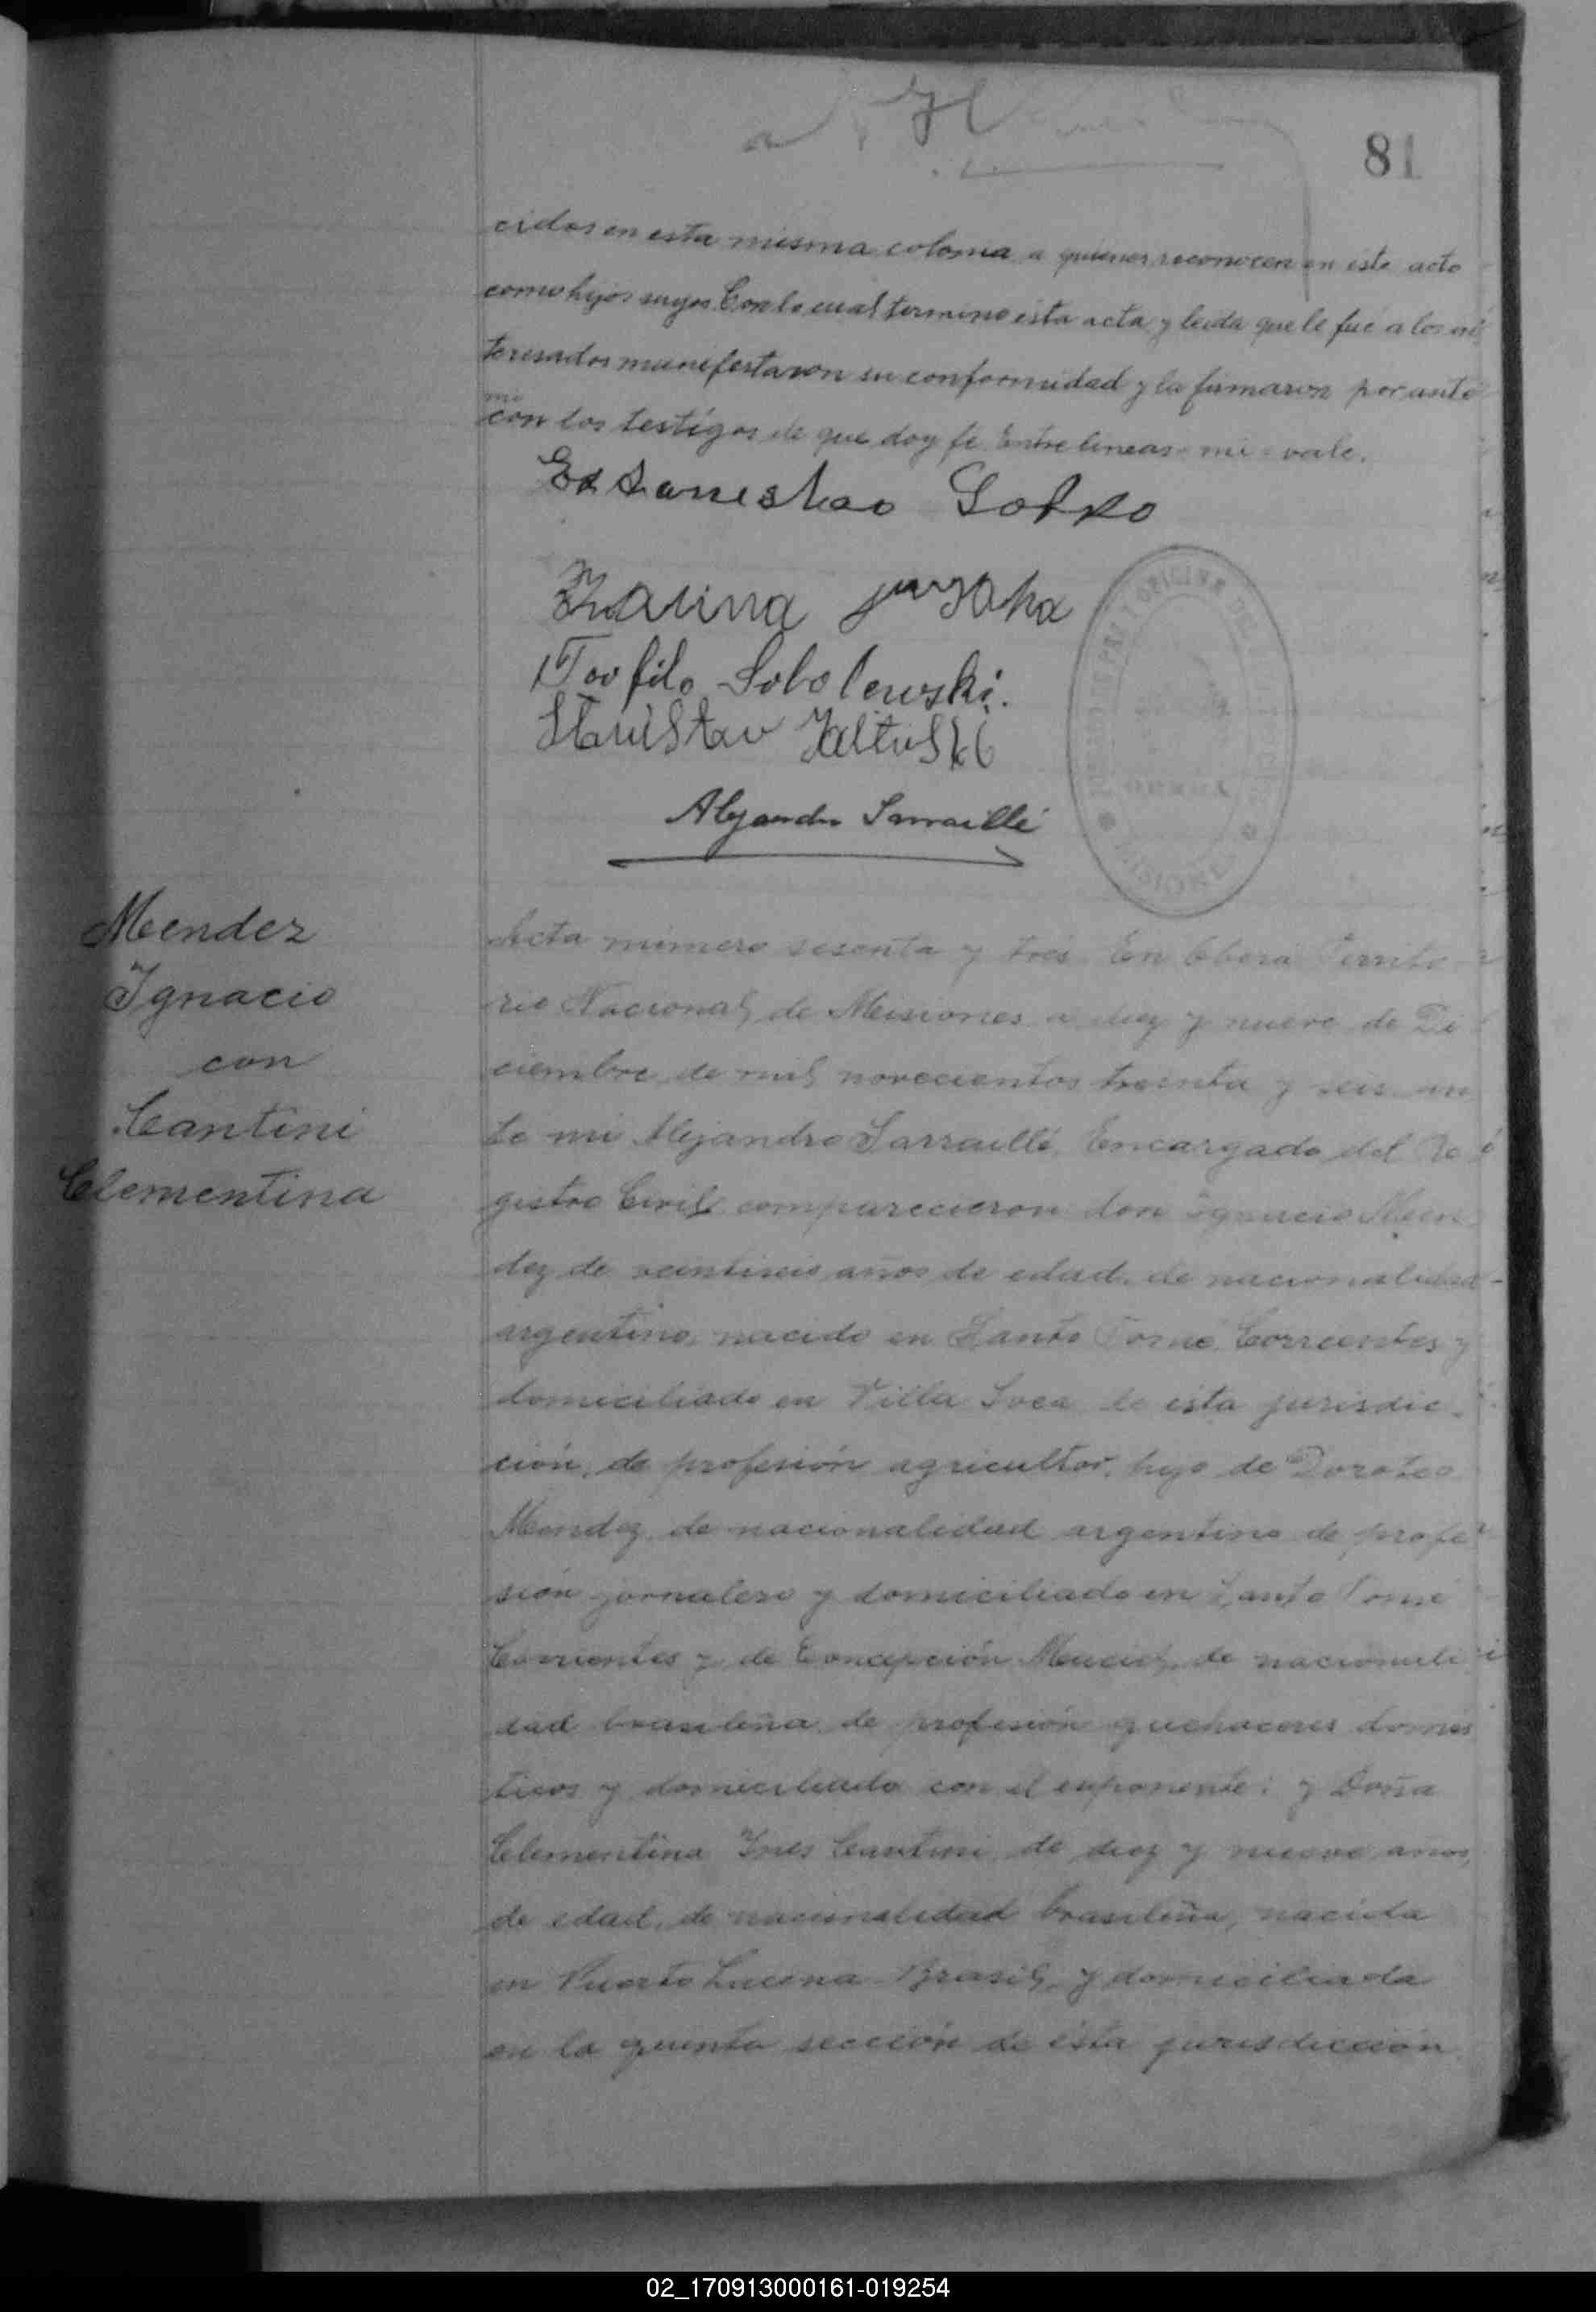 81
cidos en esta misma colonia a quienes reconocen en este acto
como hijos suyos. Con lo cual termino esta acta y leida que le fué a los in
teresados manifestaron su conformidad y la firmaron por ante
mi
con los testigos de que doy fé. Entre lineas - mi - vale.
Estanislao
Teofilo Sobolewski.
Alejandro Sarraillé
Mendez
Ignacio
con
Cantini
Clementina
Acta número sesenta y tres. En Oberá Territo
rio Nacional de Misiones a diez y nueve de Di
ciembre de mil novecientos treinta y seis an
te mi Alejandro Sarraillé, Encargado del Re
gistro Civil comparecieron don Ignacio Men
dez de veintiseis años de edad, de nacionalidad
argentino, nacido en Santo Tomé Corrientes y
domiciliado en Villa Svea de esta jurisdic-
ción, de profesión agricultor, hijo de Doroteo
Mendez, de nacionalidad argentino de profe
sión jornalero y domiciliado en Santo Tomé
Corrientes y de Concepción Maciel, de nacionali
dad brasileña de profesión quehaceres domés
ticos y domiciliada con el exponente; y Doña
Clementina Ines Cantini, de diez y nueve años
de edad, de nacionalidad brasileña, nacida
en Puerto Lucena Brasil, y domiciliada
en la quinta sección de esta jurisdicción
OFICINA DEL
MISIONES
02_170913000161-019254